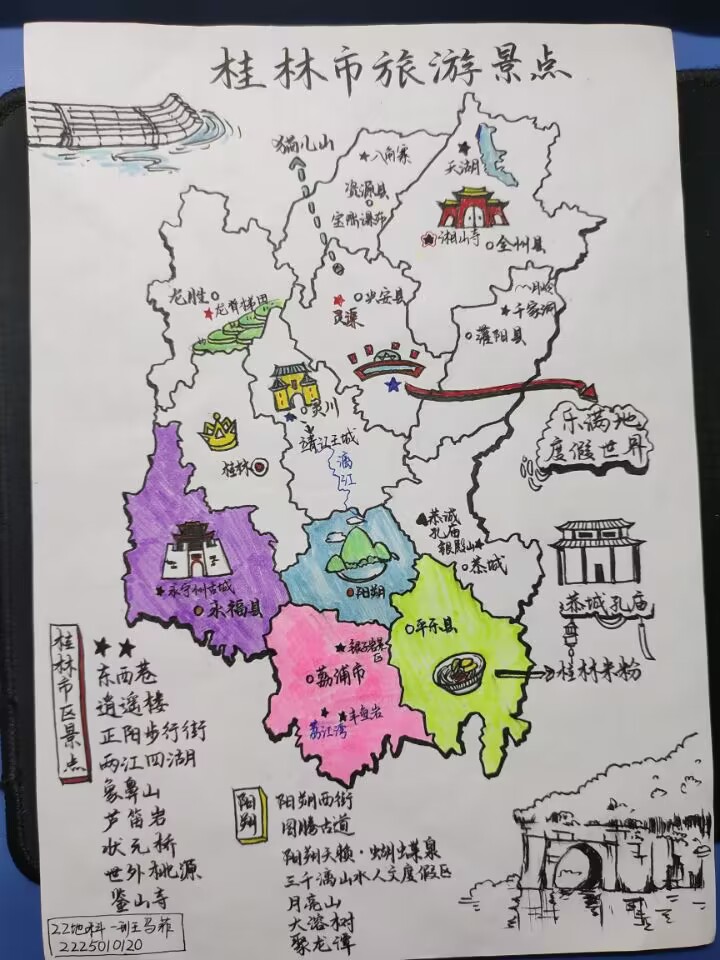 桂林市旅游景点
猫儿山
八角寨
天湖
资源县
宝鼎瀑布
湘山寺
全州县
龙胜
龙脊梯田
兴安县
灵渠
千家洞
灌阳县
灵川
靖江王城
漓江
桂林
乐满地
度假世界
恭城
孔庙
银殿山
恭城
恭城孔庙
永宁州古城
永福县
阳朔
平乐县
银子岩景
区
荔浦市
丰鱼岩
荔江湾
桂林米粉
桂林市区景点
东西巷
逍遥楼
正阳步行街
两江四湖
象鼻山
芦笛岩
状元桥
世外桃源
鉴山寺
阳朔
阳朔西街
图腾古道
阳朔天籁·蝴蝶泉
三千漓山水人文度假区
月亮山
大溶树
聚龙谭
22地科一班王马菲
2225010120